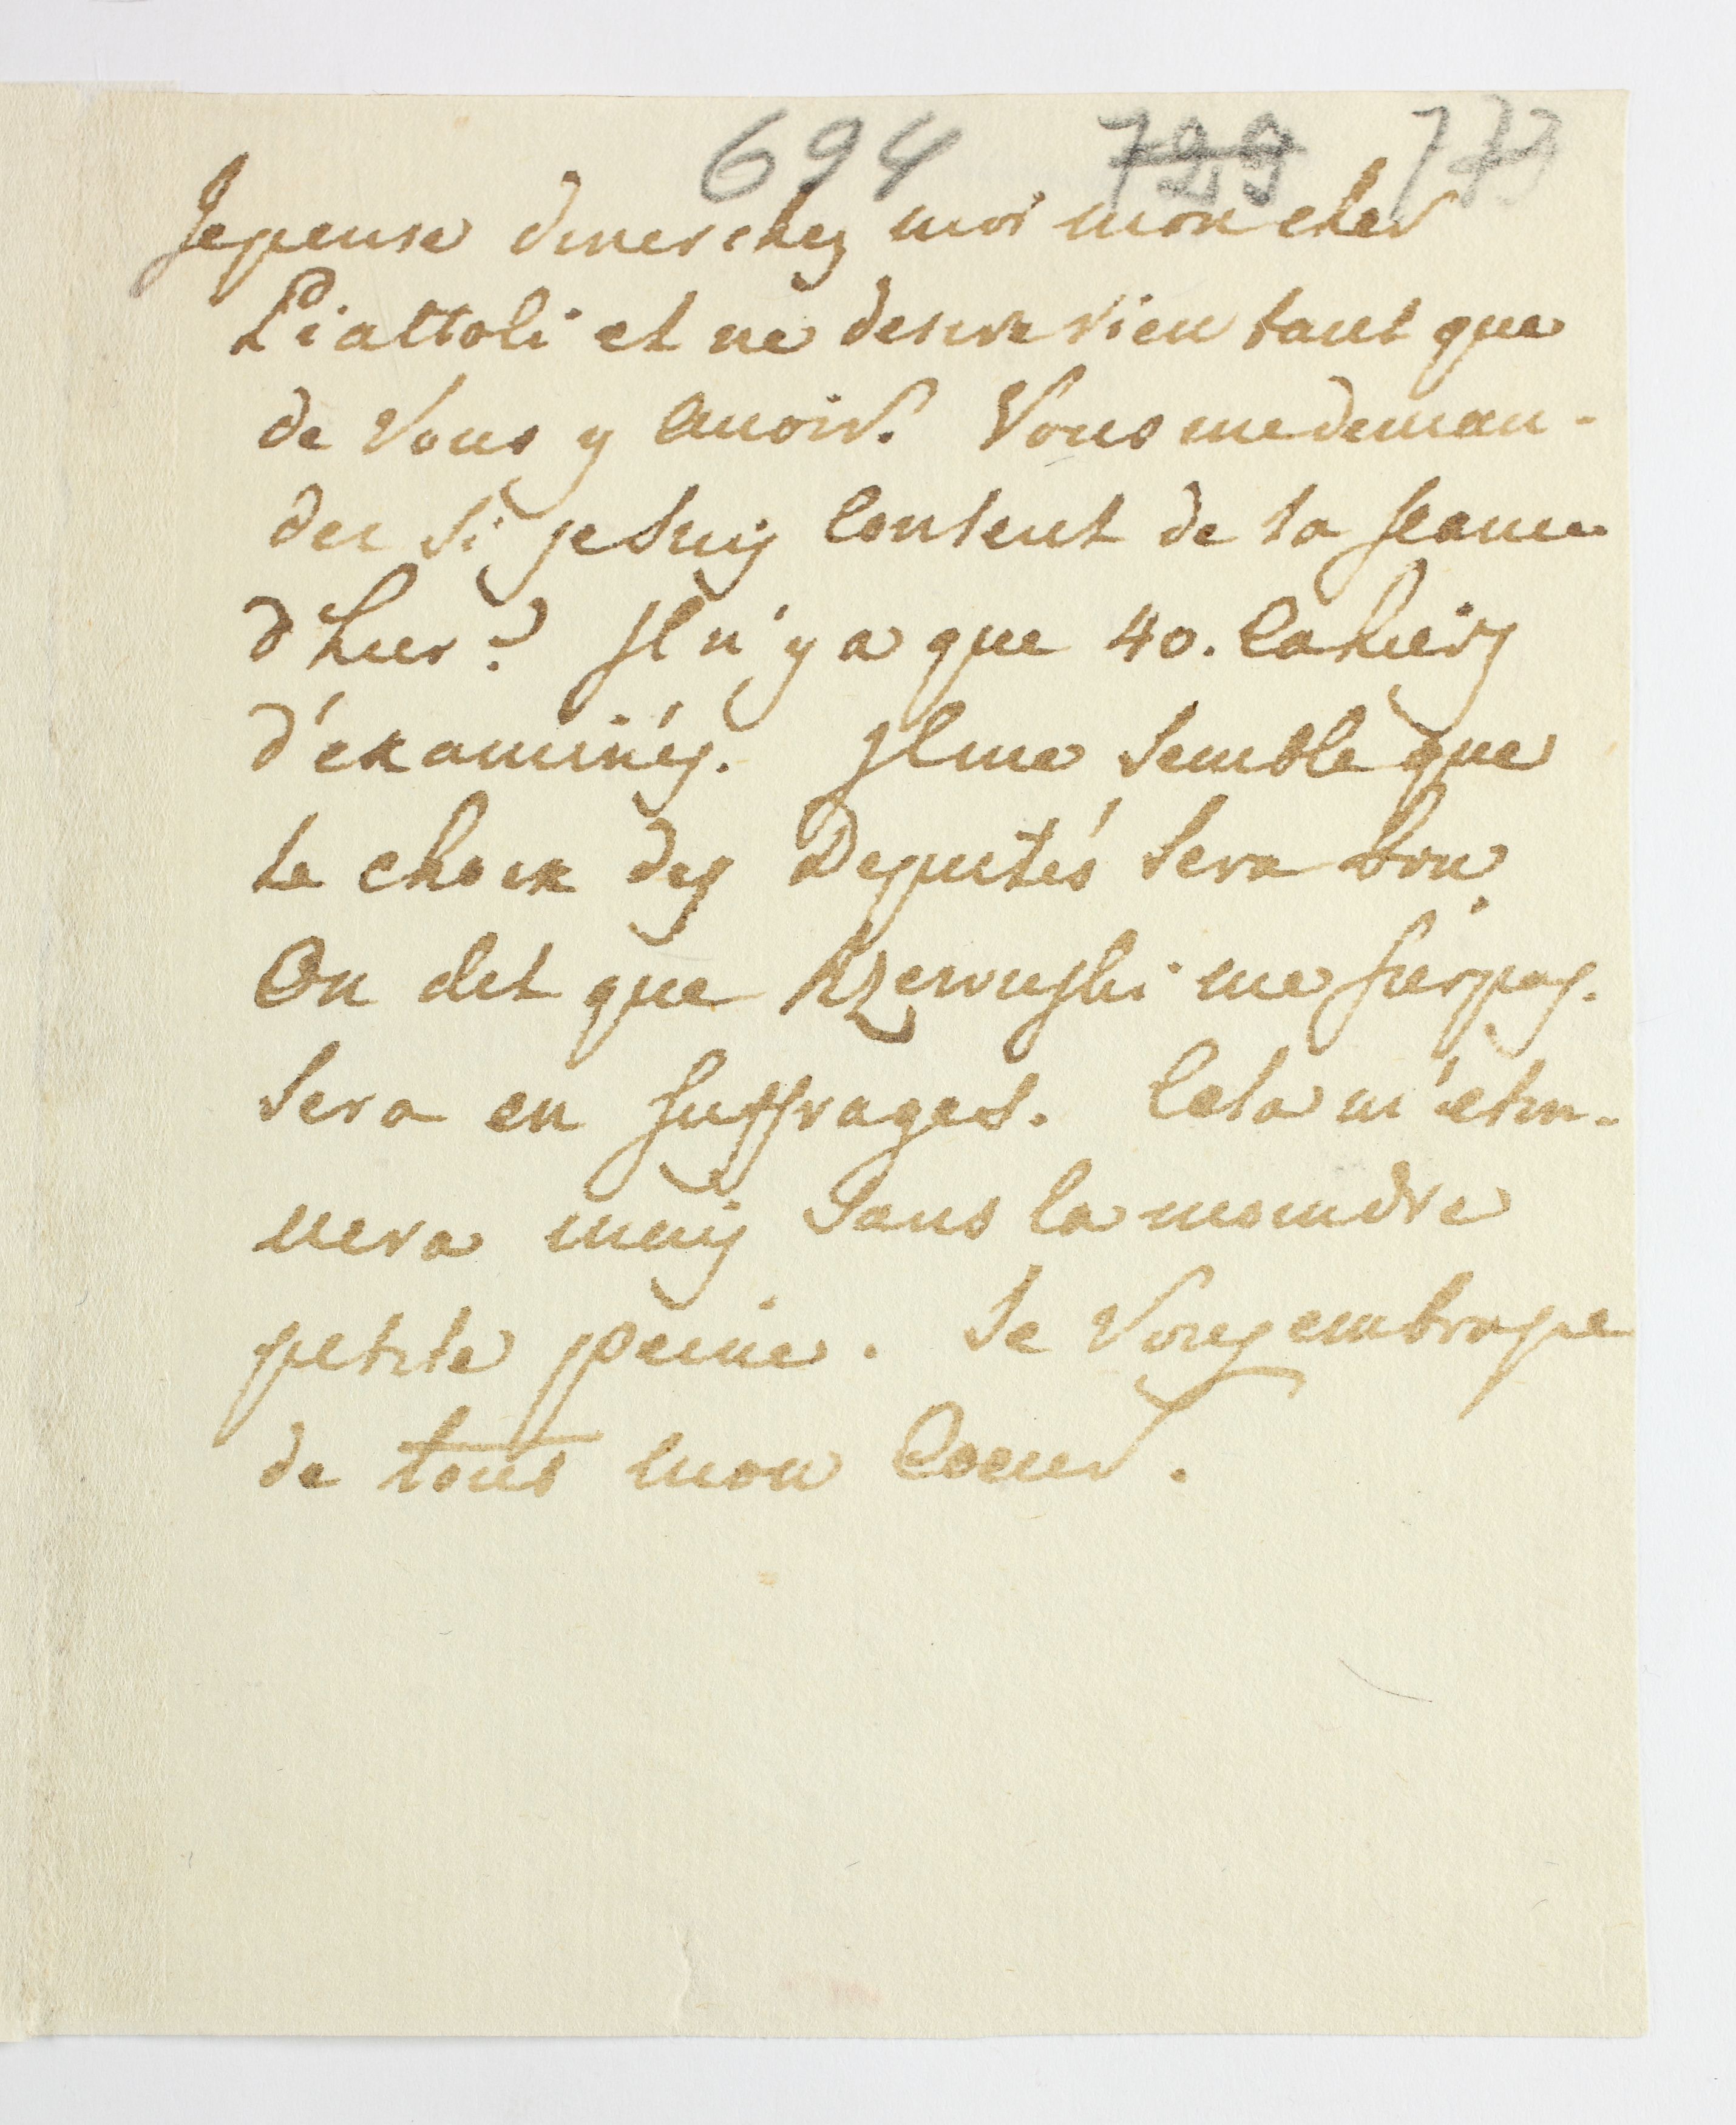 694 729 773
Je pense diner chez moi mon cher
Piattoli et ne desire rien tant que
de Vous y avoir. Vous me deman-
dez si je suis Content de la seance
d'hier? Il n'y a que 40. Cahiers
d'éxaminés. Il me semble que
le choix des Deputés sera bon.
On dit que Rzewuski me surpas.
sera en suffrages. Cela m'eton-
nera mais sans la moindre
petite peine. Je Vous embrasse
de tout mon Coeur.